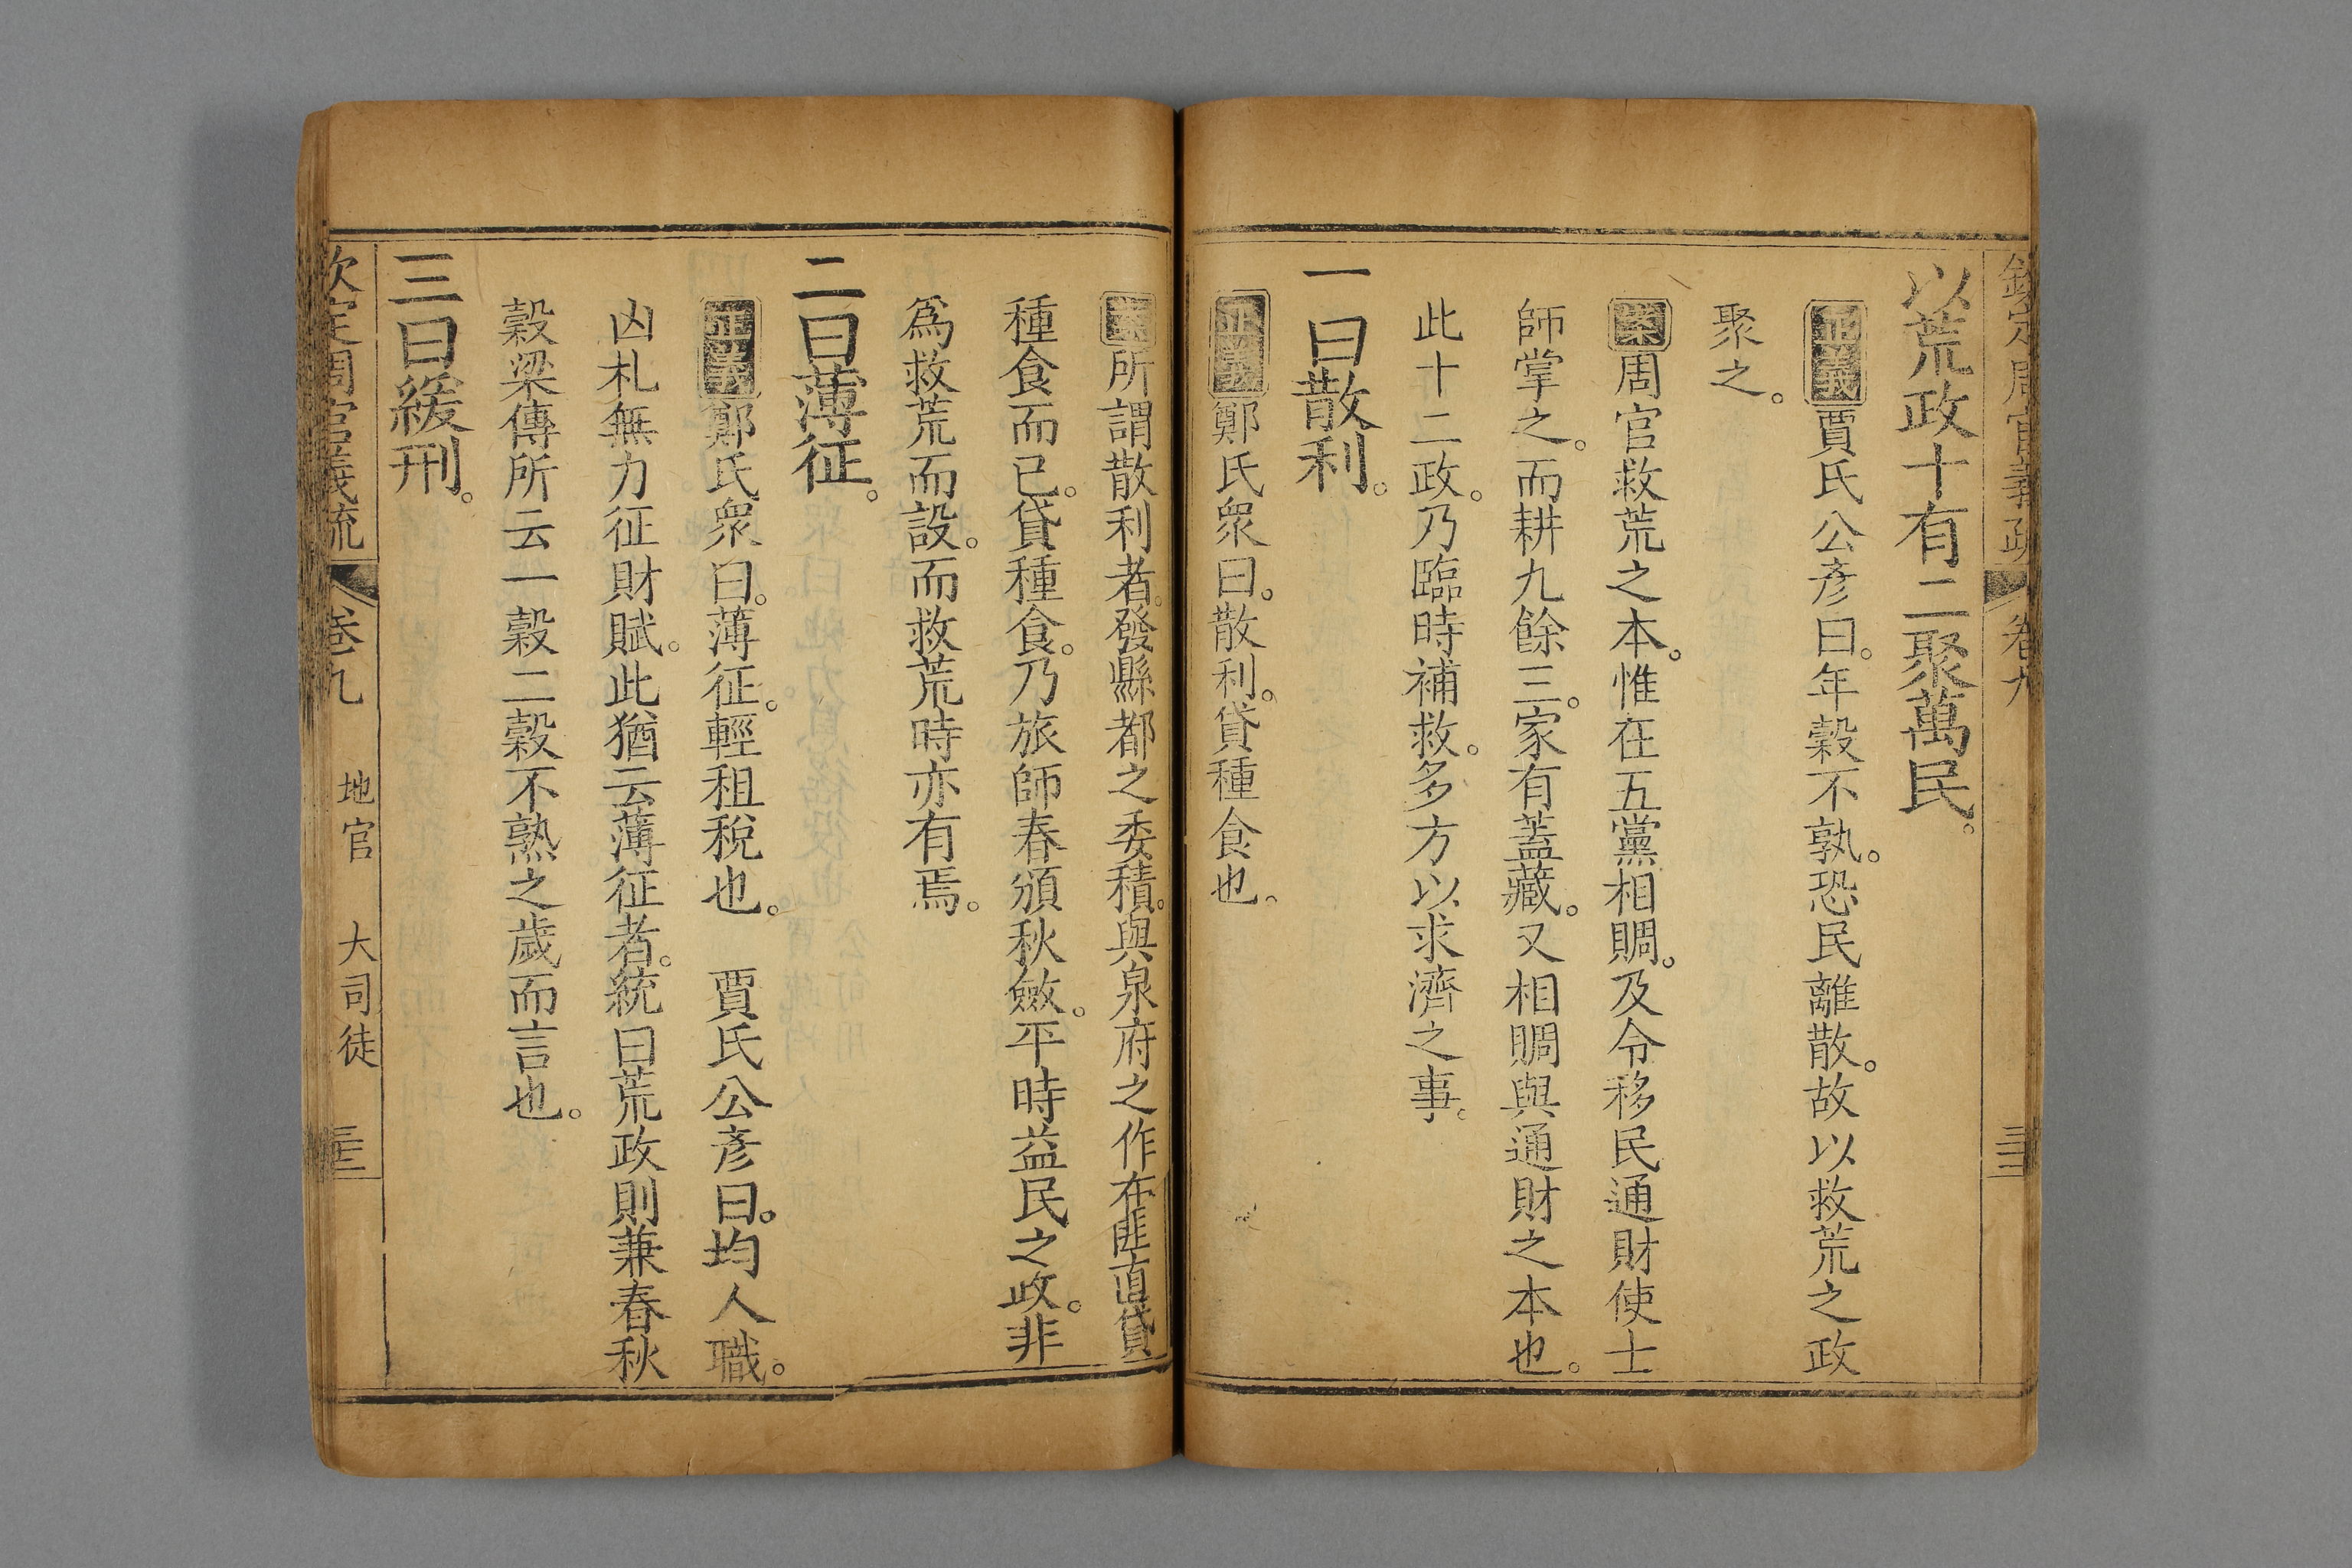 欽定周官義疏 卷九
以荒政十有二聚萬民。
正義賈氏公彦曰。年穀不孰。恐民離散。故以救荒之政
聚之。
案周官救荒之本。惟在五黨相賙。及令移民通財使士
師掌之。而耕九餘三。家有蓋藏。又相賙與通財之本也。
此十二政。乃臨時補救。多方以求濟之事。
一曰散利。
正義鄭氏衆曰。散利。貸種食也。
案所謂散利者。發縣都之委積。與泉府之作布匪直貸
種食而已。貸種食。乃旅師春頒秋斂。平時益民之政。非
爲救荒而設。而救荒時亦有焉。
二曰薄征。
正義鄭氏衆曰。薄征。輕租稅也。 賈氏公彦曰。均人職。
凶札無力征財賦。此猶云薄征者。統曰荒政則兼春秋
穀梁傳所云一穀二穀不熟之歲而言也。
三曰緩刑。
欽定周官義疏 卷九 地官 大司徒